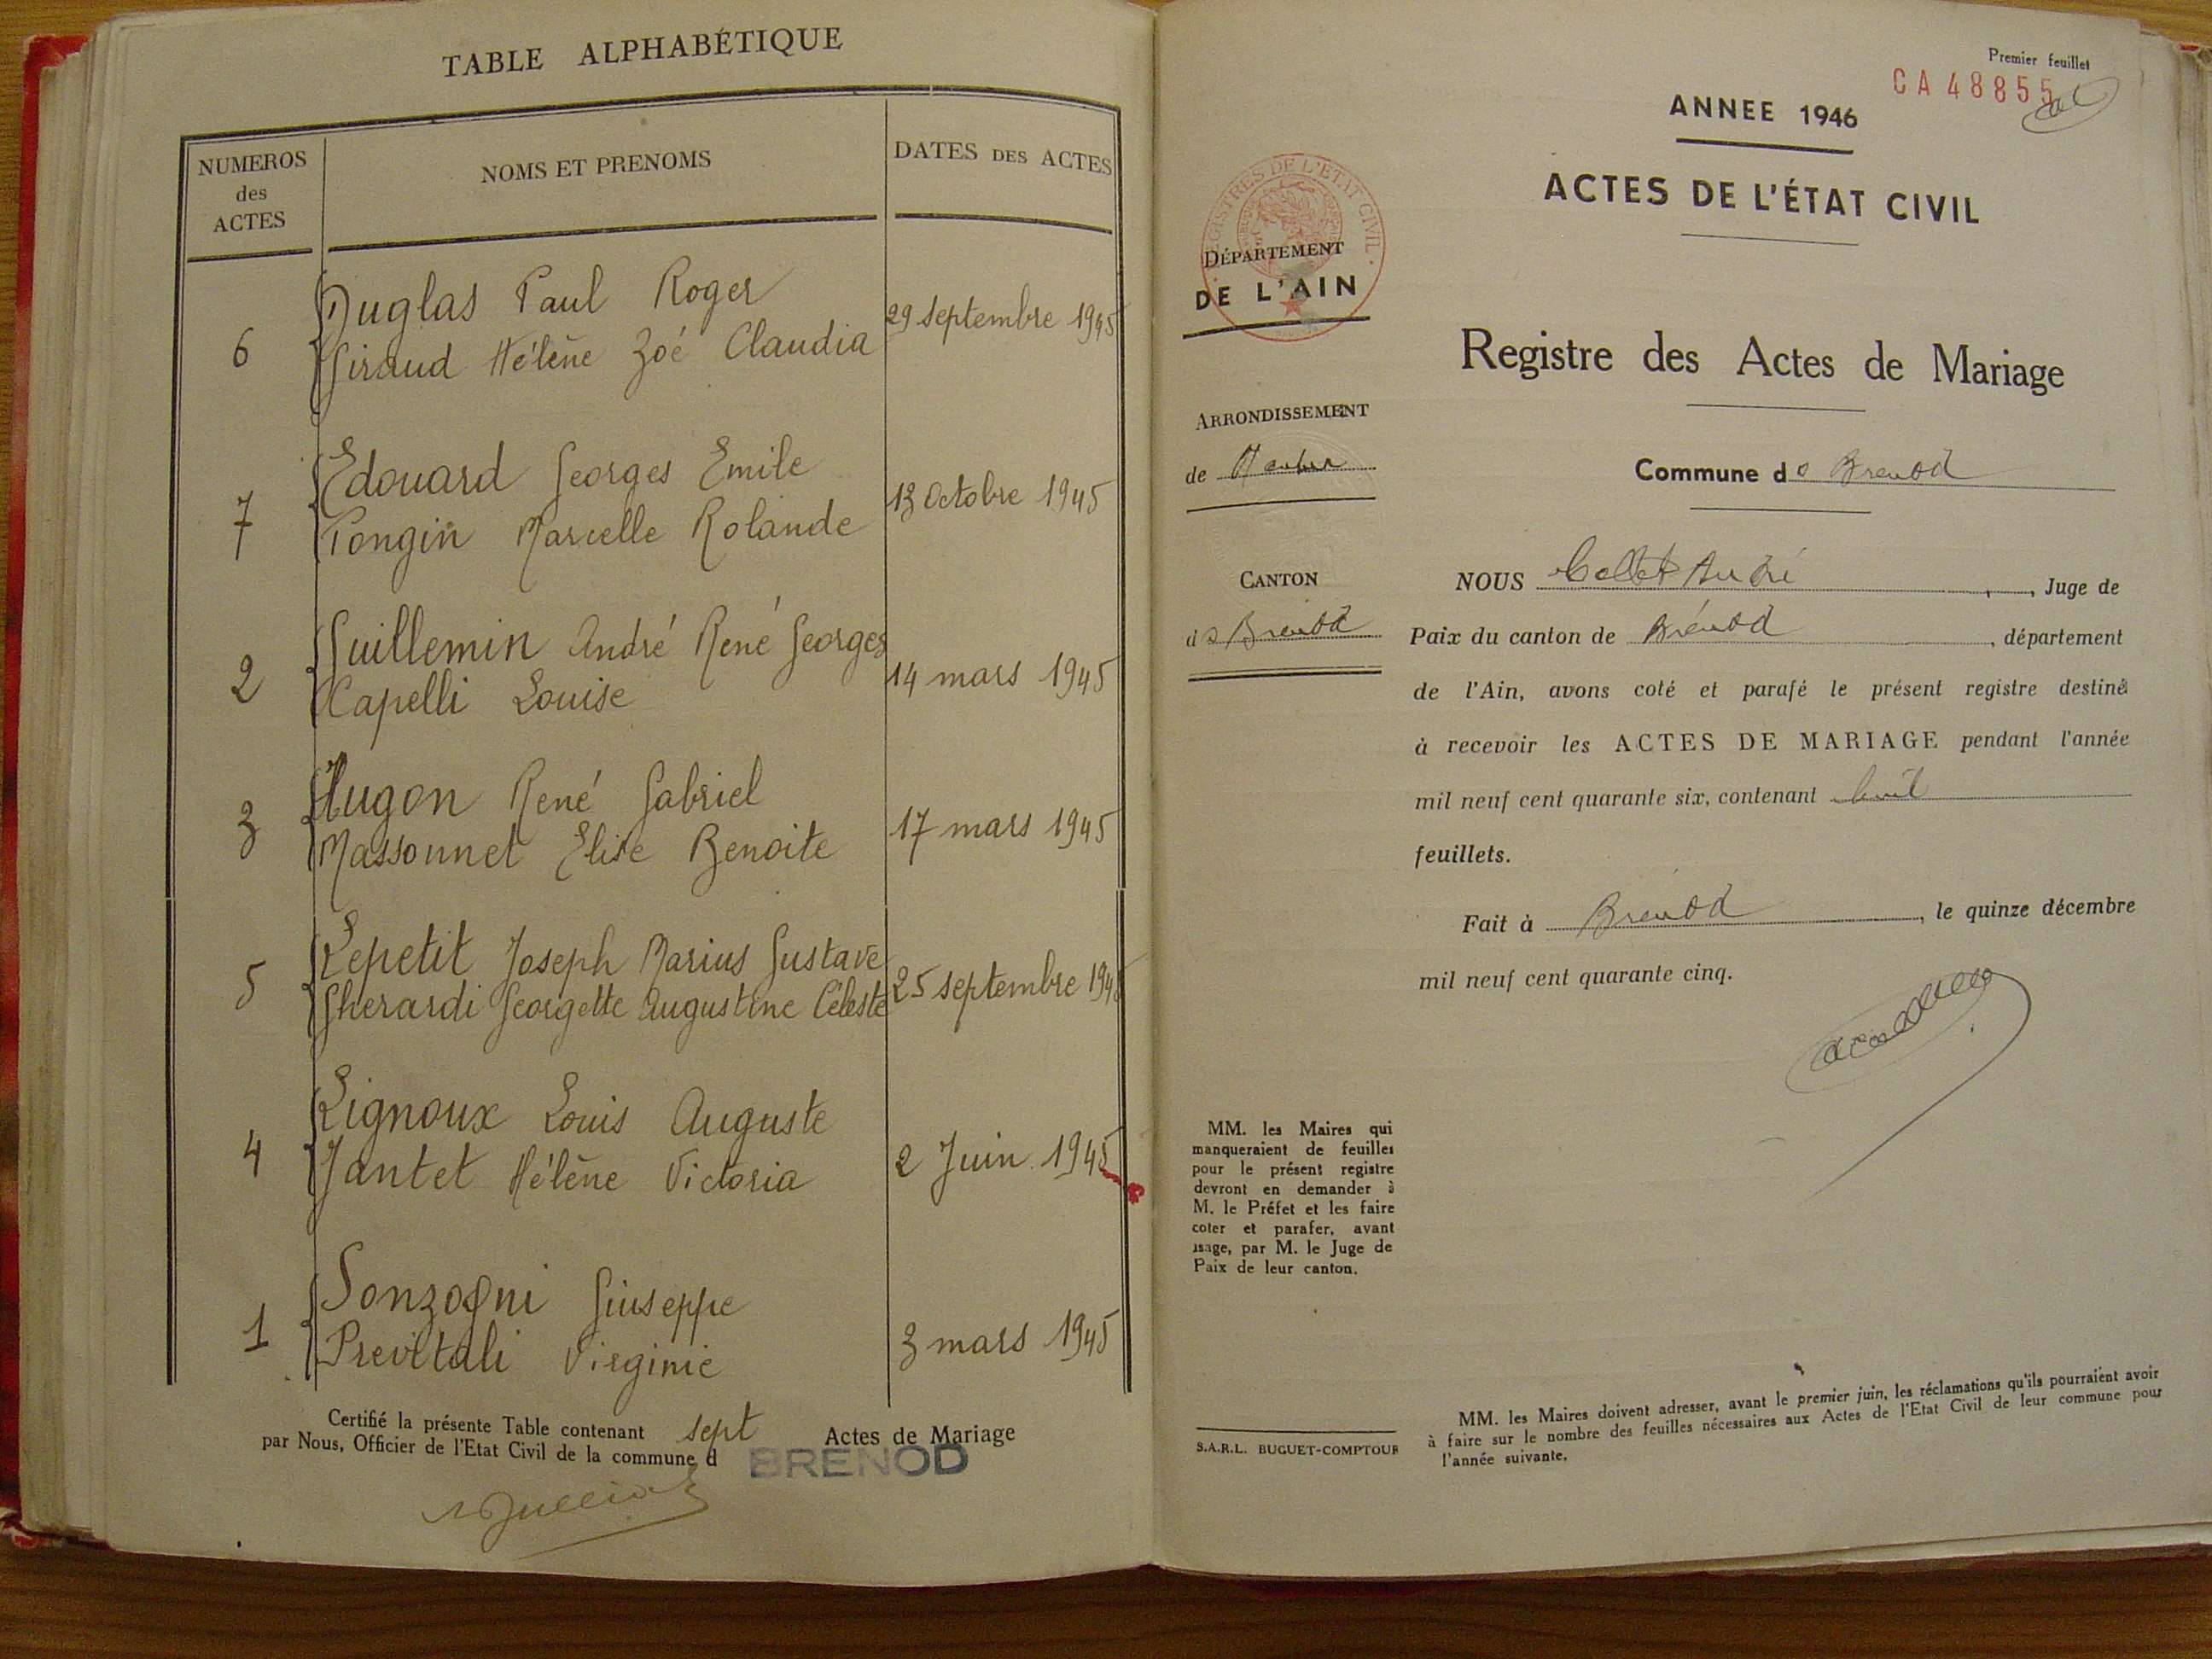 TABLE ALPHABÉTIQUE
NUMEROS
des
ACTES
NOMS ET PRENOMS
DATES DES ACTES
Duglas Paul Roger
6 Giraud Hélène Zoé Claudia 29 septembre 1945
Edouard Georges Emile
7 Pongin Marcelle Rolande 13 Octobre 1945
Guillemin André René Georges
2 Capelli Louise 14 mars 1945
Hugon René Gabriel
3 Massonnet Elise Benoite 17 mars 1945
Lepetit Joseph Marius Gustave
5 Gherardi Georgette Augustine Céleste 25 septembre 1945
Lignoux Louis Auguste
4 Jantet Hélène Victoria 2 Juin 1945
Sonzogni Giuseppe
1 Previtali Virginie 3 mars 1945
Certifié la présente Table contenant sept Actes de Mariage
par Nous, Officier de l'Etat Civil de la commune d BRENOD
Premier feuillet
CA 48855
ANNEE 1946
ACTES DE L'ÉTAT CIVIL
REGISTRES DE L'ETAT CIVIL
DÉPARTEMENT
DE L'AIN
Registre des Actes de Mariage
ARRONDISSEMENT
de Nantua
Commune de Brenod
CANTON
de Brenod
NOUS Collet André, Juge de
Paix du canton de Brénod, département
de l'Ain, avons coté et parafé le présent registre destiné
à recevoir les ACTES DE MARIAGE pendant l'année
mil neuf cent quarante six, contenant huit
feuillets.
Fait à Brénod, le quinze décembre
mil neuf cent quarante cinq.
MM. les Maires qui
manqueraient de feuilles
pour le présent registre
devront en demander à
M. le Préfet et les faire
coter et parafer, avant
usage, par M. le Juge de
Paix de leur canton.
S.A.R.L. BUGUET-COMPTOUR
MM. les Maires doivent adresser, avant le premier juin, les réclamations qu'ils pourraient avoir
à faire sur le nombre des feuilles nécessaires aux Actes de l'Etat Civil de leur commune pour
l'année suivante.